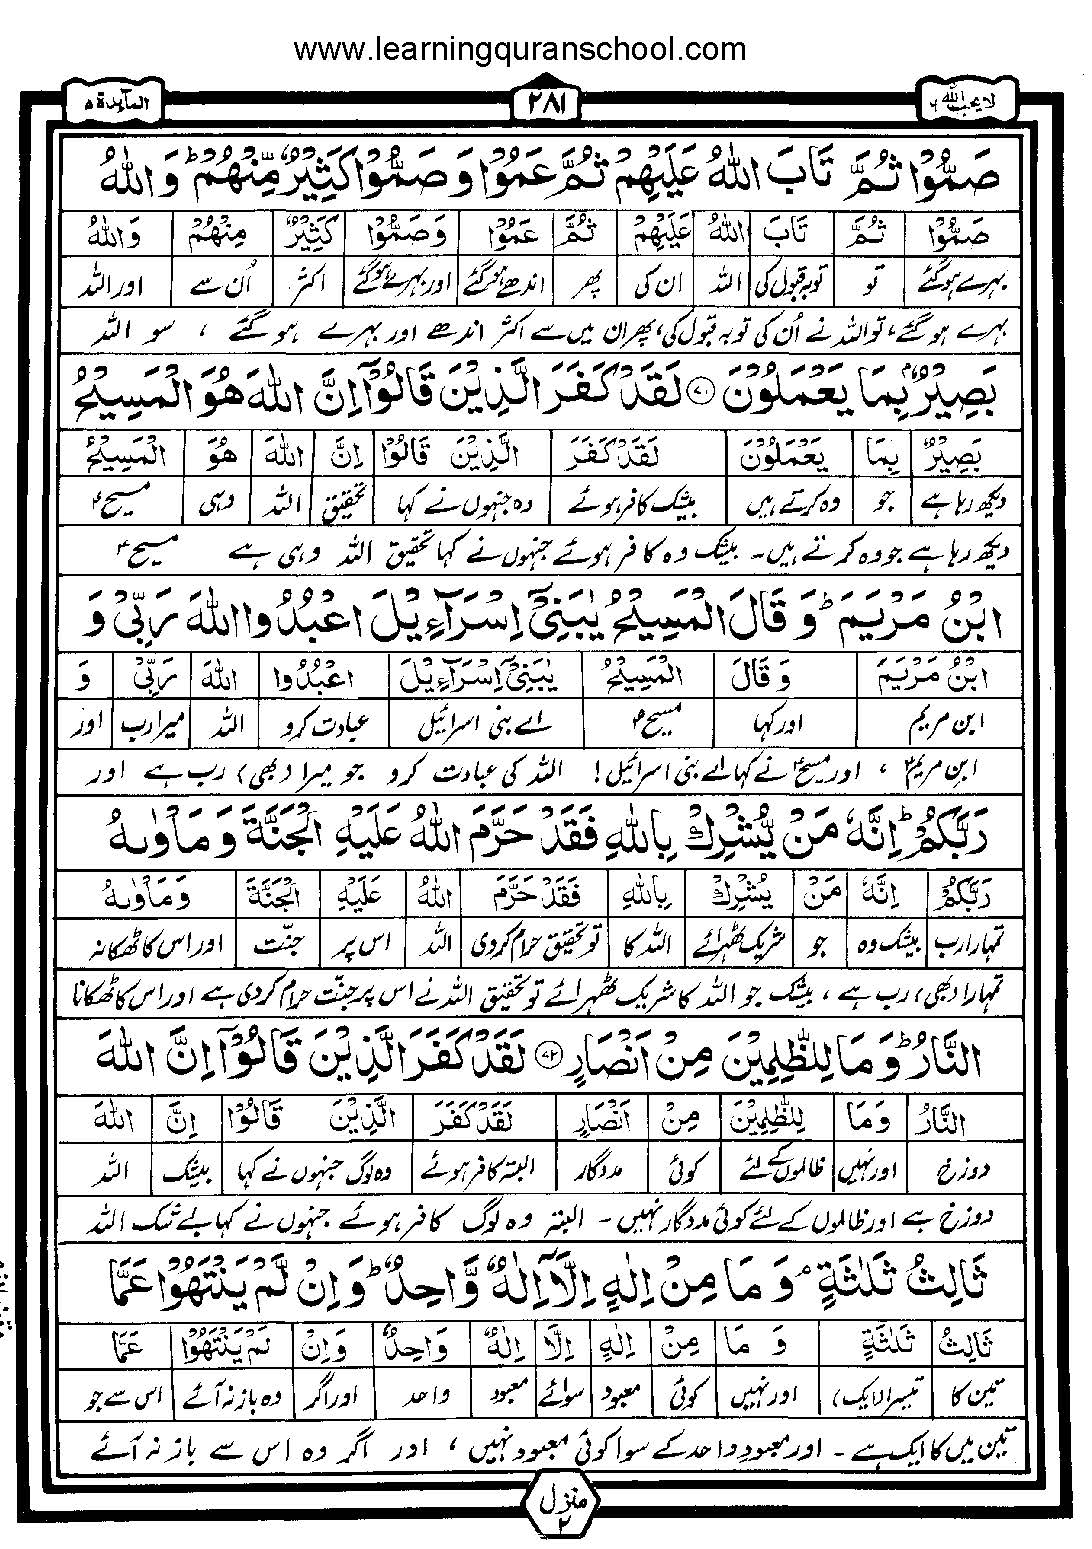 www.learningquranschool.com
المآئدة ۵
۲۸۱
لا یحب اللہ ۶
صَمُّوْا ثُمَّ تَابَ اللّٰهُ عَلَیْهِمْ ثُمَّ عَمُوْا وَ صَمُّوْا كَثِیْرٌ مِّنْهُمْ ؕ وَ اللّٰهُ
صَمُّوْا ثُمَّ تَابَ اللّٰهُ عَلَیْهِمْ ثُمَّ عَمُوْا وَصَمُّوْا كَثِیْرٌ مِنْهُمْ وَاللّٰهُ
بہرے ہوگئے تو توبہ قبول کی اللہ ان کی پھر اندھے ہوگئے اور بہرے ہوگئے اکثر اُن سے اور اللہ
بہرے ہوگئے، تو اللہ نے اُن کی توبہ قبول کی، پھر ان میں سے اکثر اندھے اور بہرے ہو گئے ، سو اللہ
بَصِیْرٌۢ بِمَا یَعْمَلُوْنَ ﴿۷۱﴾ لَقَدْ كَفَرَ الَّذِیْنَ قَالُوْۤا اِنَّ اللّٰهَ هُوَ الْمَسِیْحُ
بَصِیْرٌ بِمَا یَعْمَلُوْنَ لَقَدْ كَفَرَ الَّذِیْنَ قَالُوْا اِنَّ اللّٰهَ هُوَ الْمَسِیْحُ
دیکھ رہا ہے جو وہ کرتے ہیں بیشک کافر ہوئے وہ جنہوں نے کہا تحقیق اللہ وہی مسیحؑ
دیکھ رہا ہے جو وہ کرتے ہیں۔ بیشک وہ کافر ہوئے جنہوں نے کہا تحقیق اللہ وہی ہے مسیحؑ
ابْنُ مَرْیَمَ ؕ وَ قَالَ الْمَسِیْحُ یٰبَنِیْۤ اِسْرَآءِیْلَ اعْبُدُوا اللّٰهَ رَبِّیْ وَ
ابْنُ مَرْیَمَ وَ قَالَ الْمَسِیْحُ یٰبَنِیْۤ اِسْرَآءِیْلَ اعْبُدُوا اللّٰهَ رَبِّیْ وَ
ابن مریم اور کہا مسیحؑ اے بنی اسرائیل عبادت کرو اللہ میرا رب اور
ابن مریمؑ ، اور مسیحؑ نے کہا اے بنی اسرائیل! اللہ کی عبادت کرو جو میرا (بھی) رب ہے اور
رَبَّكُمْ ؕ اِنَّهٗ مَنْ یُّشْرِكْ بِاللّٰهِ فَقَدْ حَرَّمَ اللّٰهُ عَلَیْهِ الْجَنَّةَ وَ مَاْوٰىهُ
رَبَّكُمْ اِنَّهٗ مَنْ یُشْرِكْ بِاللّٰهِ فَقَدْ حَرَّمَ اللّٰهُ عَلَیْهِ الْجَنَّةَ وَمَاْوٰىهُ
تمہارا رب بیشک وہ جو شریک ٹھہرائے اللہ کا تو تحقیق حرام کردی اللہ اس پر جنّت اور اس کا ٹھکانہ
تمہارا (بھی) رب ہے، بیشک جو اللہ کا شریک ٹھہرائے تو تحقیق اللہ نے اس پر جنّت حرام کردی ہے اور اس کا ٹھکانا
النَّارُ ؕ وَ مَا لِلظّٰلِمِیْنَ مِنْ اَنْصَارٍ ﴿۷۲﴾ لَقَدْ كَفَرَ الَّذِیْنَ قَالُوْۤا اِنَّ اللّٰهَ
النَّارُ وَمَا لِلظّٰلِمِیْنَ مِنْ اَنْصَارٍ لَقَدْ كَفَرَ الَّذِیْنَ قَالُوْا اِنَّ اللّٰهَ
دوزخ اور نہیں ظالموں کے لئے کوئی مددگار البتہ کافر ہوئے وہ لوگ جنہوں نے کہا بیشک اللہ
دوزخ ہے اور ظالموں کے لئے کوئی مددگار نہیں۔ البتہ وہ لوگ کافر ہوئے جنہوں نے کہا بے شک اللہ
ثَالِثُ ثَلٰثَةٍ ۘ وَ مَا مِنْ اِلٰهٍ اِلَّاۤ اِلٰهٌ وَّاحِدٌ ؕ وَ اِنْ لَّمْ یَنْتَهُوْا عَمَّا
ثَالِثُ ثَلٰثَةٍ وَ مَا مِنْ اِلٰهٍ اِلَّا اِلٰهٌ وَاحِدٌ وَاِنْ لَمْ یَنْتَهُوْا عَمَّا
تین کا تیسرا (ایک) اور نہیں کوئی معبود سوائے معبود واحد اور اگر وہ باز نہ آئے اس سے جو
تین میں کا ایک ہے۔ اور معبود واحد کے سوا کوئی معبود نہیں، اور اگر وہ اس سے باز نہ آئے
منزل ۲